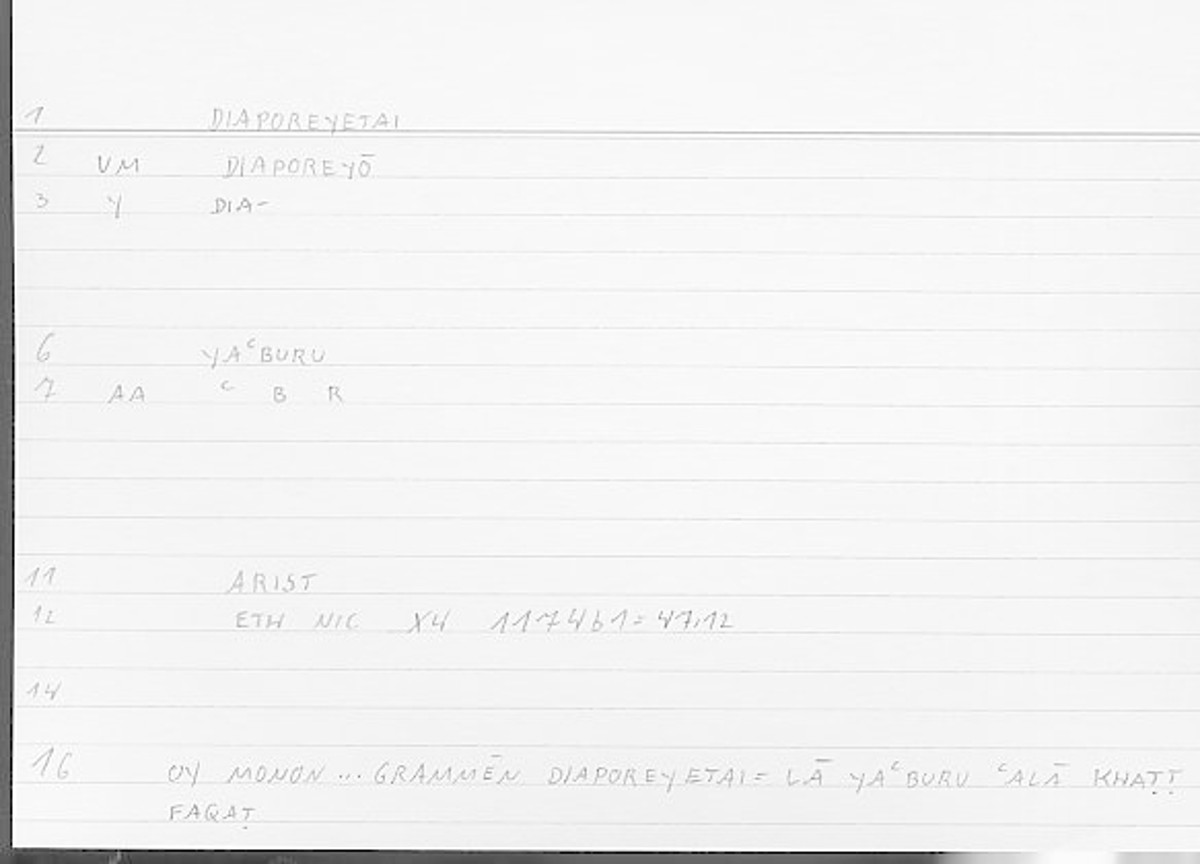 1 DIAPOREYETAI
2 VM DIAPOREYŌ
3 Y DIA-
6 YAᶜBURU
7 AA ᶜ B R
11 ARIST
12 ETH NIC X4 1174b1= 47,12
14
16 OY MONON ... GRAMMĒN DIAPOREYETAI= LĀ YAᶜBURU ᶜALĀ KHAṬṬ
FAQAṬ